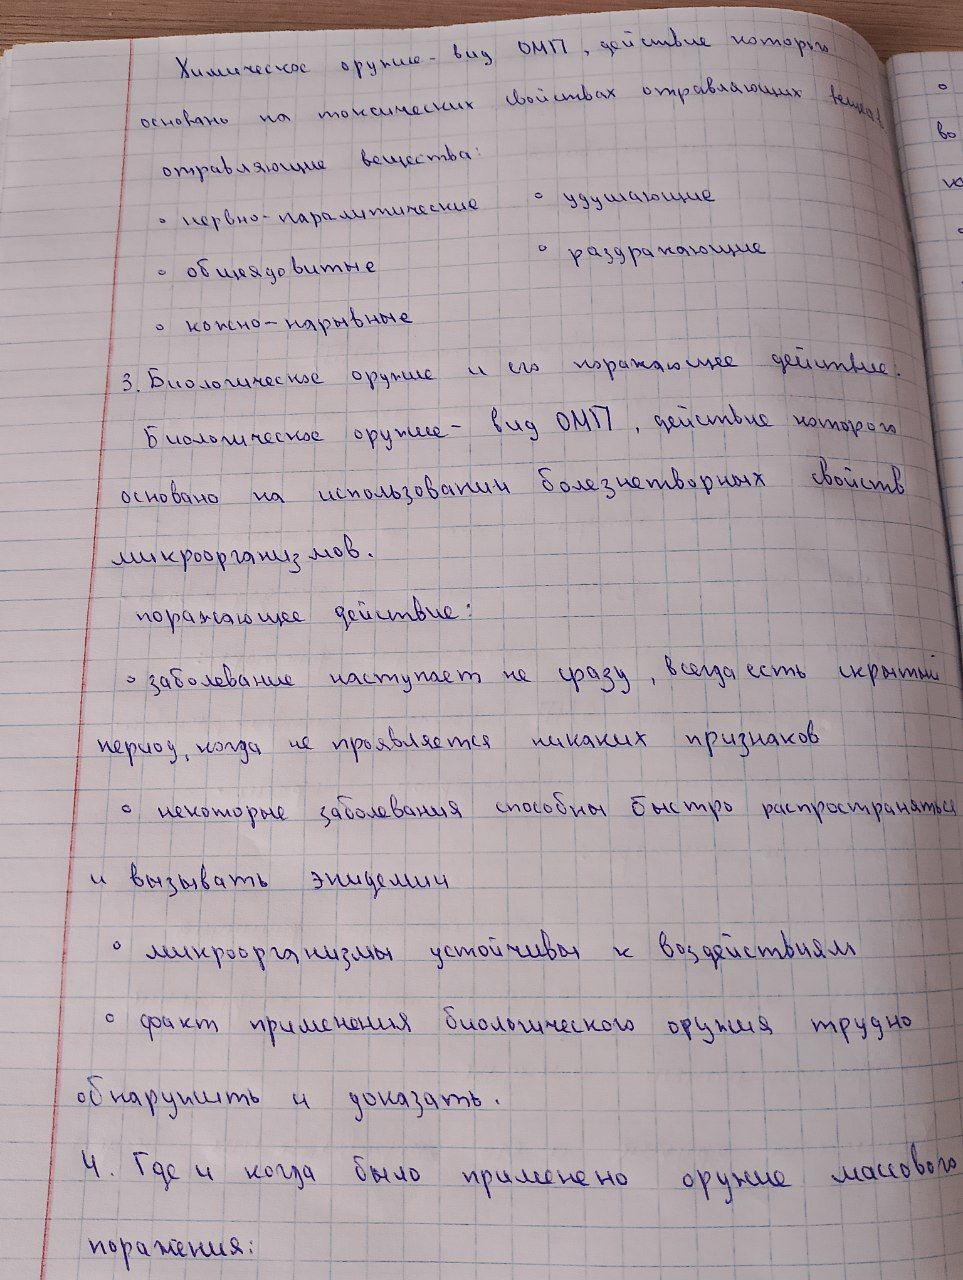 Химическое оружие - вид ОМП, действие которого
основано на токсических свойствах отравляющих веществ
отравляющие вещества:
◦ нервно-паралитические ◦ удушающие
◦ общеядовитые ◦ раздражающие
◦ кожно-нарывные
3. Биологическое оружие и его поражающее действие.
Биологическое оружие - вид ОМП, действие которого
основано на использовании болезнетворных свойств
микроорганизмов.
поражающее действие:
◦ заболевание наступает не сразу, всегда есть скрытый
период, когда не проявляется никаких признаков
◦ некоторые заболевания способны быстро распространяться
и вызывать эпидемии
◦ микроорганизмы устойчивы к воздействиям
◦ факт применения биологического оружия трудно
обнаружить и доказать.
4. Где и когда было применено оружие массового
поражения:
во